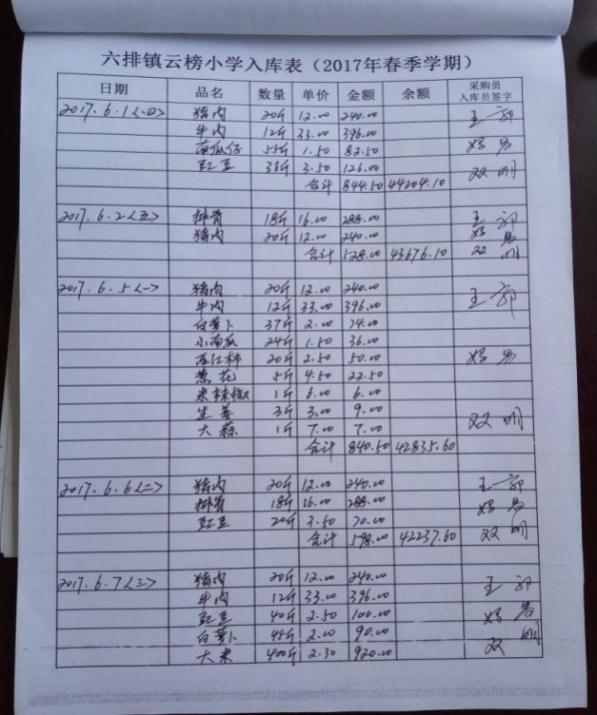 六排镇云榜小学入库表（2017年春季学期）
日期 品名 数量 单价 金额 余额 采购员
入库员签字
2017.6.1<四> 猪肉 20斤 12.00 240.00 王 郭
牛肉 12斤 33.00 396.00
南瓜仔 55斤 1.50 82.50
豇豆 36斤 3.50 126.00 双 明
合计 844.50 44204.10
2017.6.2<五> 排骨 18斤 16.00 288.00 王 郭
猪肉 20斤 12.00 240.00
合计 528.00 43676.10 双 明
2017.6.5<一> 猪肉 20斤 12.00 240.00 王 郭
牛肉 12斤 33.00 396.00
白萝卜 37斤 2.00 74.00
小南瓜 24斤 1.50 36.00
西红柿 20斤 2.50 50.00
葱花 5斤 4.50 22.50
米辣椒 1斤 6.00 6.00
生姜 3斤 3.00 9.00
大蒜 1斤 7.00 7.00 双 明
合计 840.50 42835.60
2017.6.6<二> 猪肉 20斤 12.00 240.00 王 郭
排骨 18斤 16.00 288.00
豇豆 20斤 3.50 70.00
合计 598.00 42237.60 双 明
2017.6.7<三> 猪肉 20斤 12.00 240.00 王 郭
牛肉 12斤 33.00 396.00
豇豆 40斤 2.50 100.00
白萝卜 45斤 2.00 90.00 双 明
大米 400斤 2.30 920.00